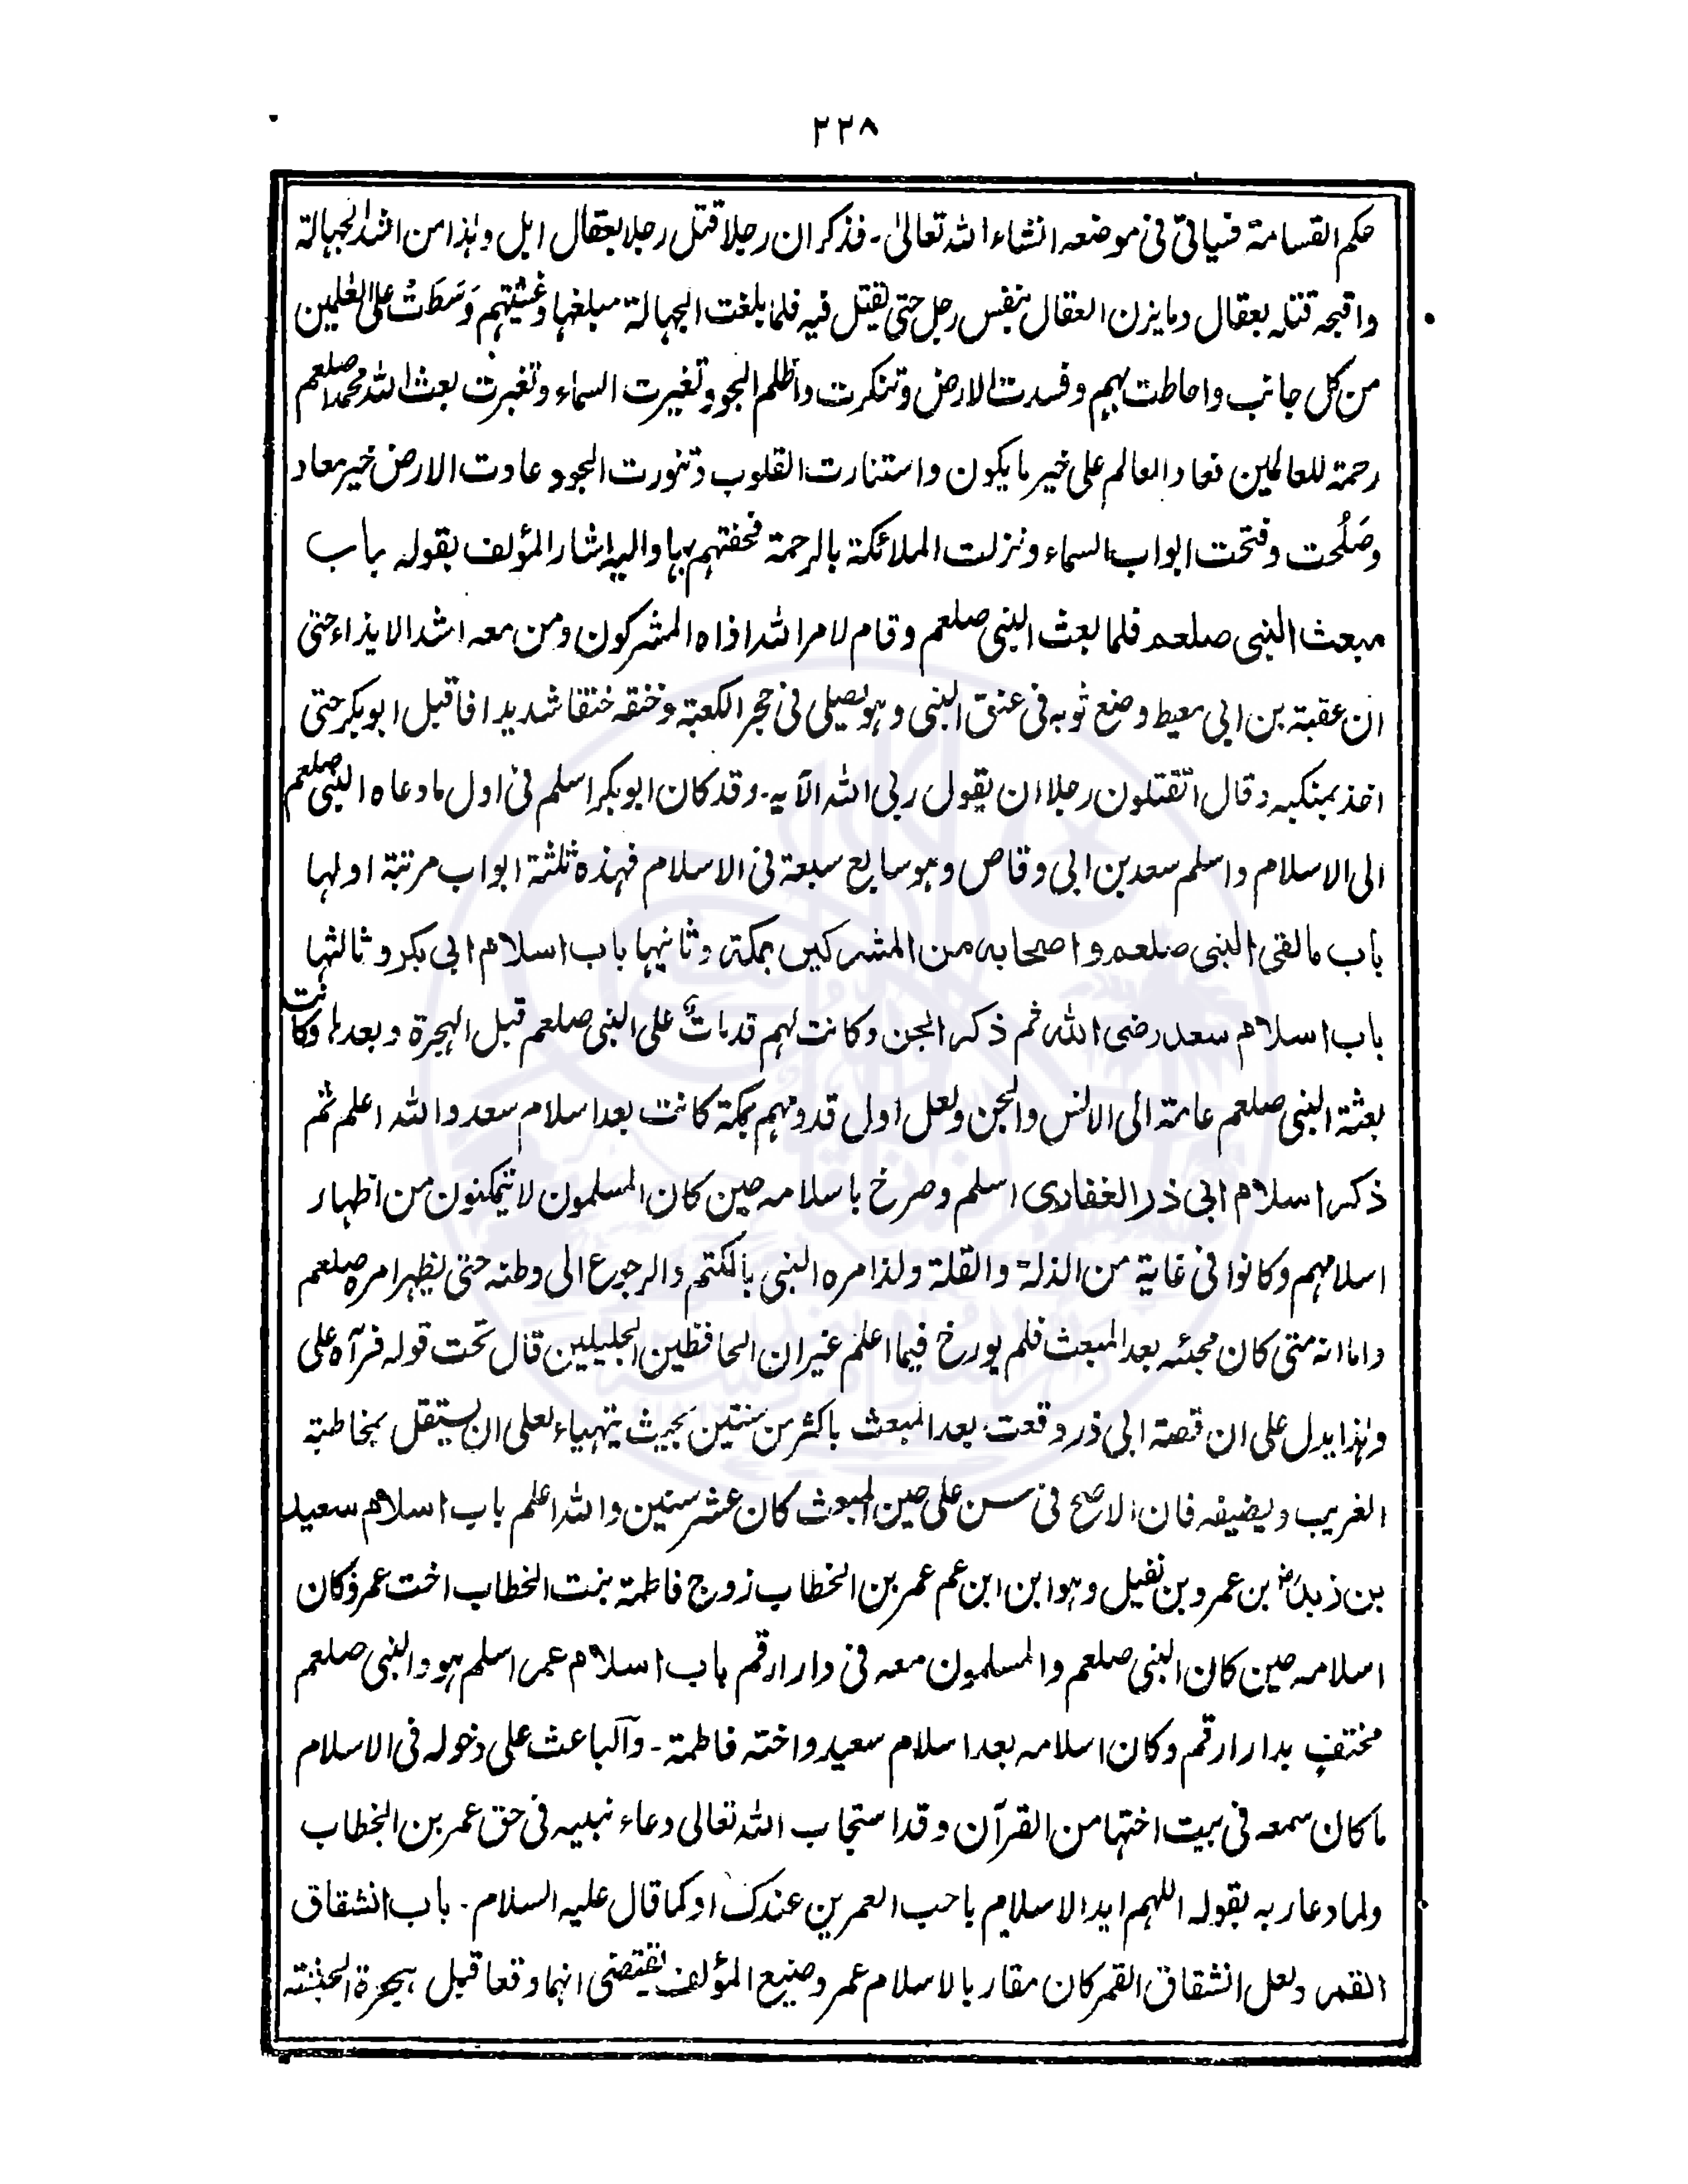 ٢٢٨
حكم القسامة فسياتى فى موضعه انشاء الله تعالىٰ۔ فذكر ان رجلا قتل رجلا بعقال ابل وہذا من اشد الجهالة
واقبحه قتله بعقال وما يزن العقال بنفس رجل حتى يقتل فيه فلما بلغت الجهالة مبلغها وغشيتهم وَسَطَتْ على العٰلمين
من كل جانب واحاطت بهم وفسدت الارض وتنكرت واظلم الجو وتغيرت السماء وتغبرت بعث الله محمدا صلعم
رحمة للعالمين فعاد العالم على خير ما يكون واستنارت القلوب وتنورت الجو وعادت الارض خير معاد
وصَلُحت وفتحت ابواب السماء ونزلت الملائكة بالرحمة فحفتهم بها واليه اشار المؤلف بقوله باب
مبعث النبى صلعم فلما بعث النبى صلعم وقام لامر الله اذاه المشركون ومن معه اشد الايذاء حتى
ان عقبة بن ابى معيط وضع ثوبه فى عنق النبى وهو يصلى فى حجر الكعبة وخنقه خنقا شديدا فاقبل ابوبكر حتى
اخذ بمنكبه وقال اتقتلون رجلا ان يقول ربى الله الآيه۔ وقد كان ابوبكر اسلم فى اول ما دعاه النبى صلعم
الى الاسلام واسلم سعد بن ابى وقاص وهو سابع سبعة فى الاسلام فهذه ثلثة ابواب مرتبة اولها
باب ما لقى النبى صلعم واصحابه من المشركين بمكة وثانيها باب اسلام ابى بكر وثالثها
باب اسلام سعد رضى الله ثم ذكر الجن وكانت لهم قدمات على النبى صلعم قبل الهجرة وبعدها وكانت
بعثة النبى صلعم عامة الى الانس والجن ولعل اول قدومهم بمكة كانت بعد اسلام سعد والله اعلم ثم
ذكر اسلام ابى ذر الغفارى اسلم وصرخ باسلامه حين كان المسلمون لا يتمكنون من اظهار
اسلامهم وكانوا فى غاية من الذلة والقلة ولذا مره النبى بالكتم والرجوع الى وطنه حتى يظهر امره صلعم
واما انه متى كان مجئه بعد المبعث فلم يورخ فيما اعلم غير ان الحافظين الجليلين قال تحت قوله فرآه على
وہذا يدل على ان قصة ابى ذر وقعت بعد المبعث باكثر من سنتين بحيث يتهياء لعلى ان يستقل بمخاطبة
الغريب ويضيفه فان الاصح فى سن على حين المبعث كان عشر سنين والله اعلم باب اسلام سعيد
بن زيد بن عمرو بن نفيل وهو ابن ابن عم عمر بن الخطاب زوج فاطمة بنت الخطاب اخت عمر وكان
اسلامه حين كان النبى صلعم والمسلمون معه فى دار ارقم باب اسلام عمر اسلم هو والنبى صلعم
مختفٍ بدار ارقم وكان اسلامه بعد اسلام سعيد واخته فاطمة۔ والباعث على دخوله فى الاسلام
ما كان سمعه فى بيت اختها من القرآن وقد استجاب الله تعالى دعاء نبيه فى حق عمر بن الخطاب
ولما دعا ربه بقوله اللهم ايد الاسلام باحب العمرين عندك او كما قال عليه السلام۔ باب انشقاق
القمر ولعل انشقاق القمر كان مقاربا لاسلام عمر وصنيع المؤلف يقتضى انهما وقعا قبل هجرة الحبشة